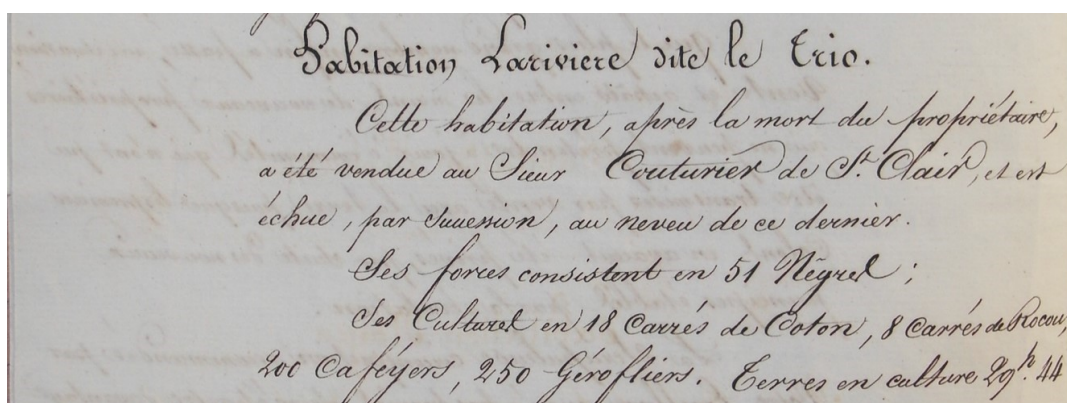 Habitation Lariviere dite le Trio.
Cette habitation, après la mort du propriétaire,
a été vendue au Sieur Couturier de St. Clair, et est
échue, par succession, au neveu de ce dernier.
Ses forces consistent en 51 Nêgres ;
Ses Cultures en 18 Carrés de Coton, 8 Carrés de Rocou,
200 Caféyers, 250 Gérofliers. Terres en culture 29h. 44